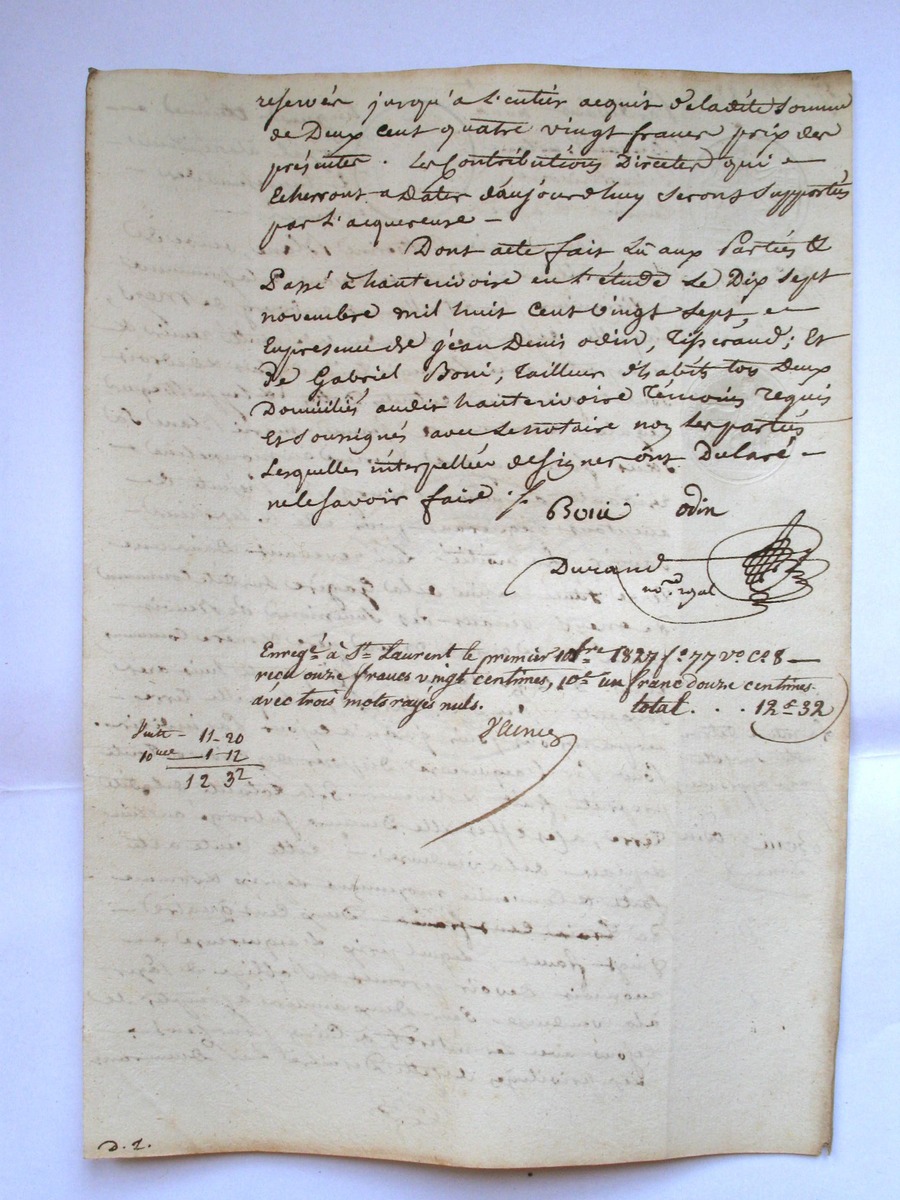 reservés jusqu'a l'entier acquit de ladite Somme
de Deux cent quatre vingt francs prix des
présentes . Les Contributions Directes qui –
Echerront a dater daujourdhuy seront supportés
par l'acquereuse –
Dont acte fait Lu aux Parties &
Passé à hauterivoire en l'étude Le Dix sept
novembre mil huit cent vingt sept, en
Enpresence de jean Denis odin, Tisserand; Et
de Gabriel Boni, Tailleur d'habits tous Deux
Domiciliés audit hauterivoire Témoins requis
Et soussignés avec Le notaire non Les parties
Lesquelles interpellées de signer ont Declaré –
ne le savoir faire ./.
Boni odin
Durand
no.re royal
Enregé à St Laurent le premier 10bre 1827 fo 77 vo Ce 8 –
reçu onze francs vingt centimes, 10e un franc douze centimes.
avec trois mots rayés nuls. total . . . 12 f 32
Vente – 11-20
10me – 1-12
12 32
D. 2.